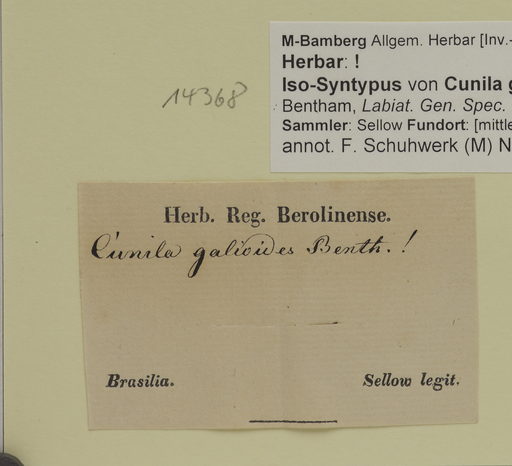 M-Bamberg Allgem. Herbar [Inv.-
Herbar: !
Iso-Syntypus von Cunila g
Bentham, Labiat. Gen. Spec.
Sammler: Sellow Fundort: [mittle
annot. F. Schuhwerk (M) N
14368
Herb. Reg. Berolinense.
Cunila galioides Benth. !
Brasilia.
Sellow legit.